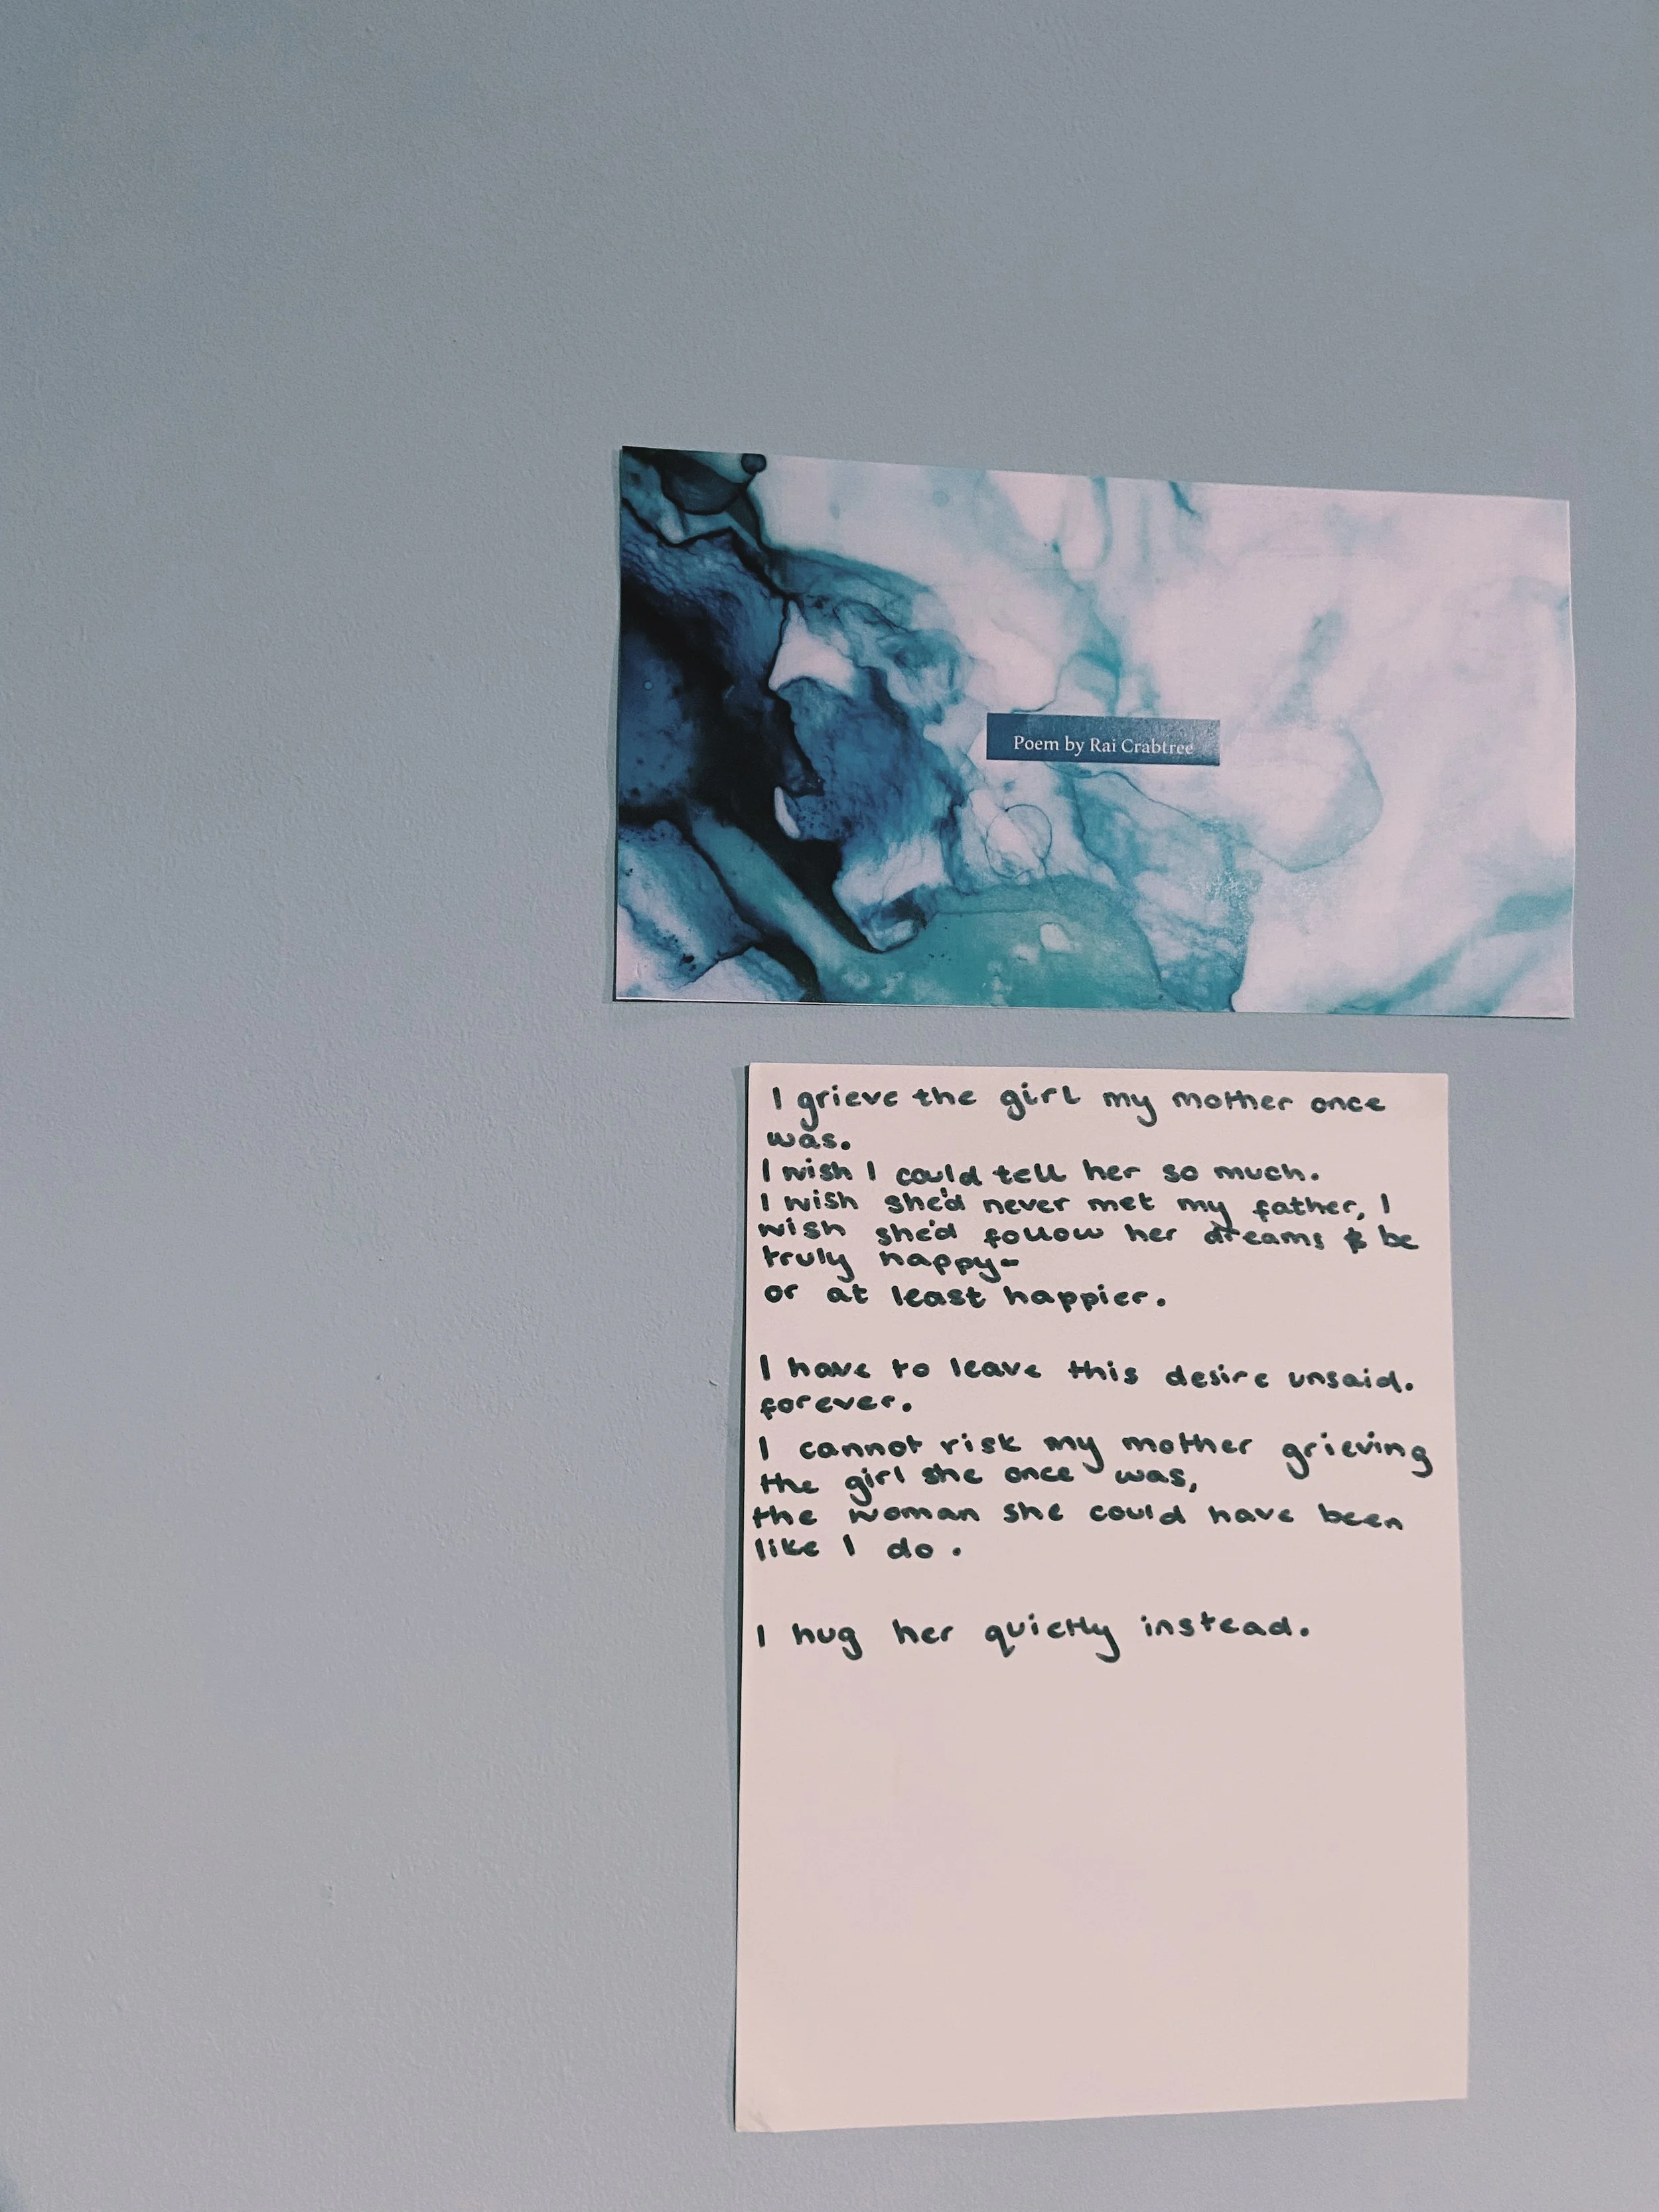 Poem by Rai Crabtree
I grieve the girl my mother once
was.
I wish I could tell her so much.
I wish she'd never met my father, I
wish she'd follow her dreams & be
truly happy-
or at least happier.
I have to leave this desire unsaid.
forever.
I cannot risk my mother grieving
the girl she once was,
the woman she could have been
like I do.
I hug her quietly instead.